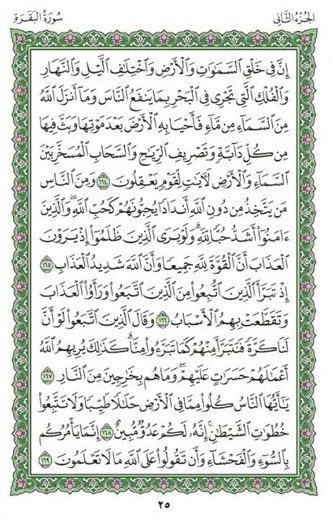 الجزء الثاني
سورة البقرة
إِنَّ فِي خَلْقِ السَّمَوَتِ وَالْأَرْضِ وَاخْتِلَفِ الَّيْلِ وَالنَّهَارِ
وَالْفُلْكِ الَّتِي تَجْرِي فِي الْبَحْرِ بِمَا يَنفَعُ النَّاسَ وَمَا أَنزَلَ اللَّهُ
مِنَ السَّمَاءِ مِن مَّاءٍ فَأَحْيَا بِهِ الْأَرْضَ بَعْدَ مَوْتِهَا وَبَثَّ فِيهَا
مِن كُلِّ دَابَّةٍ وَتَصْرِيفِ الرِّيَحِ وَالسَّحَابِ الْمُسَخَّرِ بَيْنَ
السَّمَاءِ وَالْأَرْضِ لَآيَتٍ لِّقَوْمٍ يَعْقِلُونَ ١٦٤ وَمِنَ النَّاسِ
مَن يَتَّخِذُ مِن دُونِ اللَّهِ أَندَادًا يُحِبُّونَهُمْ كَحُبِّ اللَّهِ وَالَّذِينَ
ءَامَنُوا أَشَدُّ حُبًّا لِّلَّهِ وَلَوْ يَرَى الَّذِينَ ظَلَمُوا إِذْ يَرَوْنَ
الْعَذَابَ أَنَّ الْقُوَّةَ لِلَّهِ جَمِيعًا وَأَنَّ اللَّهَ شَدِيدُ الْعَذَابِ ١٦٥
إِذْ تَبَرَّأَ الَّذِينَ اتُّبِعُوا مِنَ الَّذِينَ اتَّبَعُوا وَرَأَوُا الْعَذَابَ
وَتَقَطَّعَتْ بِهِمُ الْأَسْبَابُ ١٦٦ وَقَالَ الَّذِينَ اتَّبَعُوا لَوْ أَنَّ
لَنَا كَرَّةً فَنَتَبَرَّأَ مِنْهُمْ كَمَا تَبَرَّءُوا مِنَّا كَذَلِكَ يُرِيهِمُ اللَّهُ
أَعْمَلَهُمْ حَسَرَتٍ عَلَيْهِمْ وَمَا هُم بِخَرِجِينَ مِنَ النَّارِ ١٦٧
يَأَيُّهَا النَّاسُ كُلُوا مِمَّا فِي الْأَرْضِ حَلَلًا طَيِّبًا وَلَا تَتَّبِعُوا
خُطُوَتِ الشَّيْطَنِ إِنَّهُ لَكُمْ عَدُوٌّ مُّبِينٌ ١٦٨ إِنَّمَا يَأْمُرُكُم
بِالسُّوءِ وَالْفَحْشَاءِ وَأَن تَقُولُوا عَلَى اللَّهِ مَا لَا تَعْلَمُونَ ١٦٩
٢٥